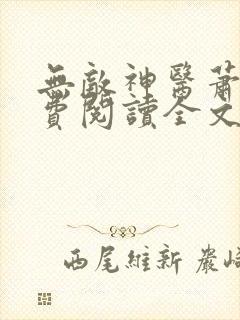 無敵神醫蕭
費閱讀全文
西尾維新 嚴崎